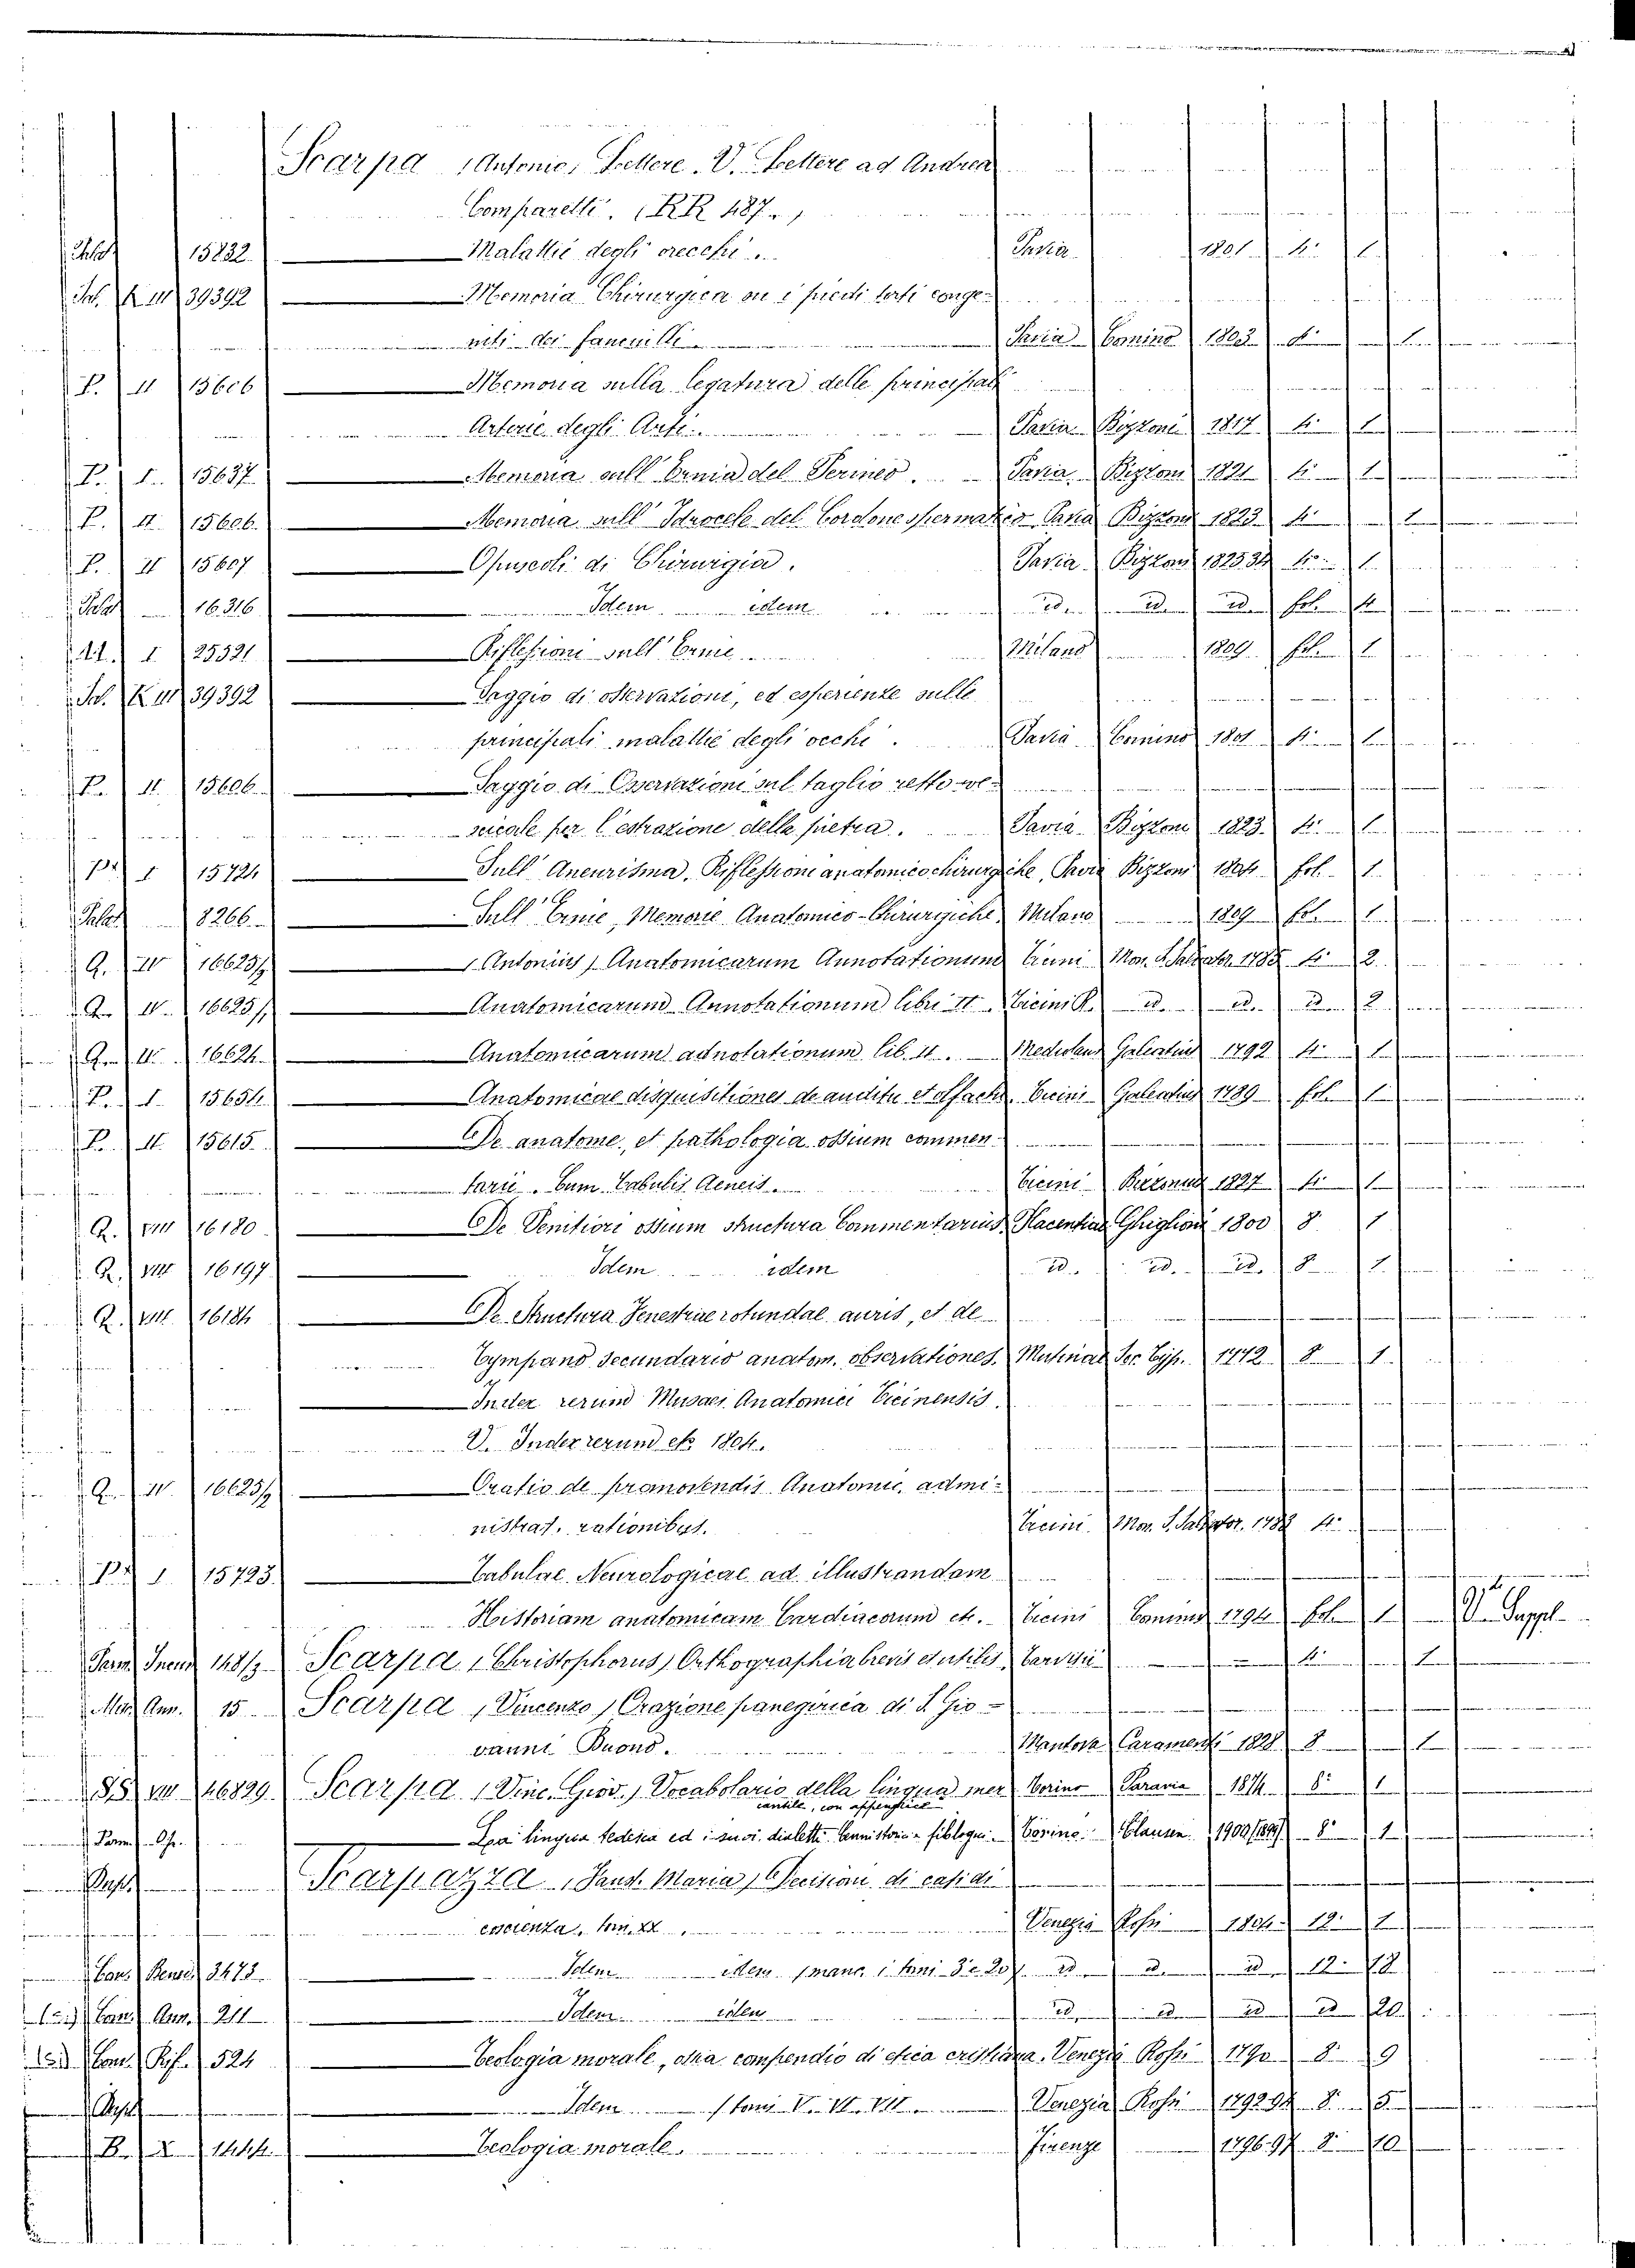 Scarpa (Antonio) Lettere. V. Lettere ad Andrea
Comparetti. (RR 487.)
15832 Malattie degli orecchi. Pavia 1801 4.° 1
K III 39392 Memoria Chirurgica su i piedi torti conge-
niti dei fanciulli Pavia Comino 1803 4.° 1
P. II 15606 Memoria sulla legatura delle principali
Arterie degli Arti. Pavia Bizzoni 1817 4.° 1
P. I. 15637 Memoria sull' Ernia del Perineo. Pavia Bizzoni 1821 4.° 1
P. II. 15606. Memoria sull' Idrocele del Cordone spermatico Pavia Bizzoni 1823 4.° 1
P. II 15607 Opuscoli di Chirurgia. Pavia Bizzoni 1825.32 4.° 1
16316 Idem idem id. id. id. fol. 4
I 25321 Riflessioni sull' Ernie Milano 1809 fol. 1
K III 39392 Saggio di osservazioni, ed esperienze sulle
principali malattie degli occhi. Pavia Comino 1801 4.° 1
P. II 15606 Saggio di Osservazioni sul taglio retto ve-
scicale per l'estrazione della pietra. Pavia Bizzoni 1823. 4.° 1
I 15724 Sull' Aneurisma, Riflessioni anatomico chirurgiche, Pavia Bizzoni 1804 fol. 1
8266 Sull' Ernie, Memorie Anatomico-Chirurgiche, Milano 1809 fol. 1
Q. IV 16623/ (Antonius) Anatomicarum Annotationum Ticini Mon. S. Salvator. 1785 4.° 2
Q. IV. 16625/ Anatomicarum Annotationum libri II. Ticini R. id. id. id. 2
Q. IV. 16624 Anatomicarum adnotationum lib. II. Mediolani Galeatius 1792 4.° 1
P. I. 15654 Anatomicae disquisitiones de auditu et olfactu. Ticini Galeatius 1789 fol. 1
P. II. 15615 De anatome, et pathologia ossium commen-
tarii. Cum Tabulis Aeneis. Ticini Bizzonus 1827 4.° 1
Q. VIII 16180 De Penitiori ossium structura Commentarius Placentiae Ghiglioni 1800 8 1
Q. VIII 16197 Idem idem id. id. id. 8 1
Q. VIII. 16184 De Structura Fenestrae rotundae auris, et de
Tympano secundario anatom. observationes. Mutinae Soc. Typ. 1772 8 1
Index rerum Musaei Anatomici Ticinensis.
V. Index rerum etc. 1804.
Q. IV. 16623/ Oratio de promovendis Anatomic. admi-
nistrat. rationibus. Ticini Mon. S. Salvator. 1783 4.°
I 15723. Tabulae Neurologicae ad illustrandam
Historiam anatomicam Cardiacorum etc. Ticini Cominus 1794 fol. 1 V. Suppl.
148/3 Scarpa (Christophorus) Orthographia brevis et utilis, Tarvisii 4.° 1
Ann. 15 Scarpa (Vincenzo) Orazione panegirica di S. Gio-
vanni Buono. Mantova Caramenti 1828 8 1
SS VIII 46829 Scarpa (Vinc. Giov.) Vocabolario della lingua mer Torino Paravia 1874 8.° 1
cantile, con appendice
La lingua tedesca ed i suoi dialetti. Cenni storico-filologici. Torino Clausen 1900 (1899) 8.° 1
Scarpazza (Dans. Maria) Decisioni di casi di
coscienza, tom. XX. Venezia Rossi 1804. 12.° 1
Cons. 3473 Idem idem (manc. i tomi 3. e 20) id. id. id 12.° 18
Cons. Ann. 211 Idem idem id. id id id 20
Cons. Rif. 524 Teologia morale, ossia compendio di etica cristiana. Venezia Rossi 1790 8.° 9
Idem (tomi V. VI. VIII. Venezia Rossi 1792.94 8.° 5
B. X 1444. Teologia morale. Firenze 1796.97 8.° 10